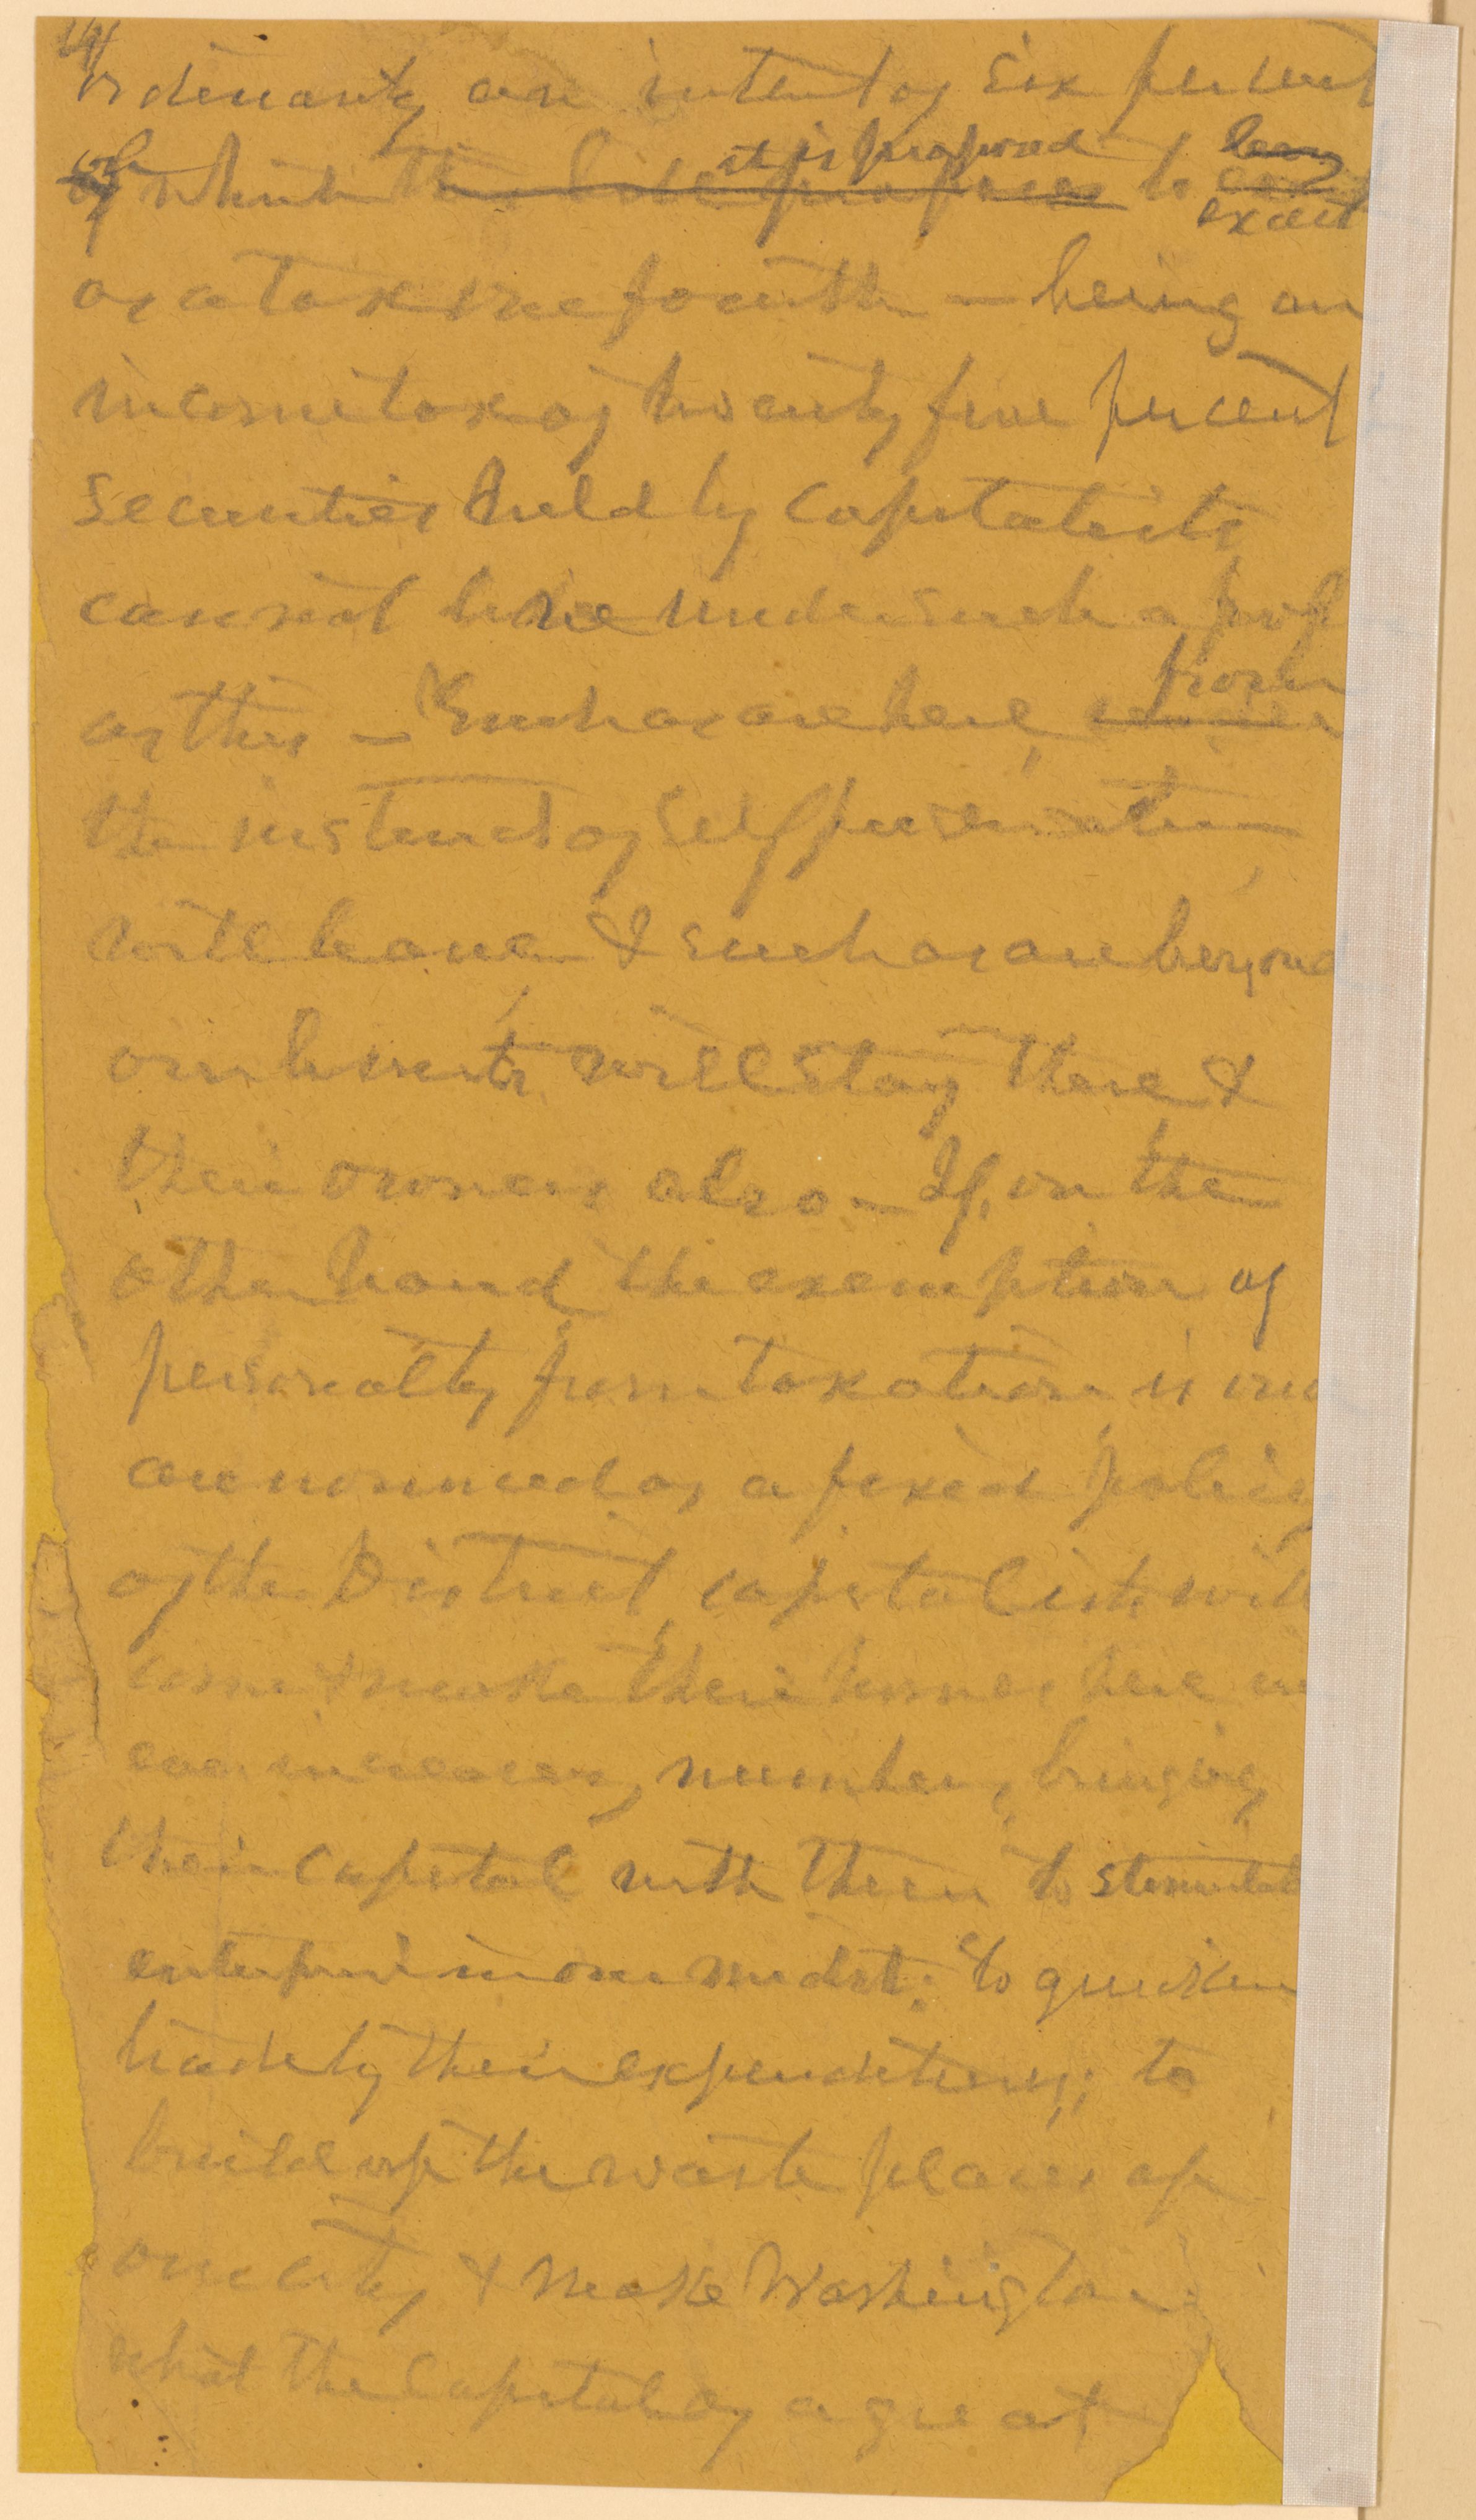 ordinarily an interest of six per cent
of which the bill proposes it is proposed to levy exact
as a tax one fourth — being an
income tax of twenty five per cent
Securities held by capitalists
cannot live under such a
as this — Such as are here, from
the instinct of self preservation,
will leave & such as are beyond
our limits, will stay there &
their owners also — If, on the
other hand the exemption of
personalty from taxation is once
announced as a fixed policy
of the District, capitalists will
come & make their homes here in
ever increasing numbers, bringing
their capital with them to stimulate
enterprise in our midst; to quicken
trade by their expenditures; to
build up the waste places of
our city & make Washington
what the Capital of a great